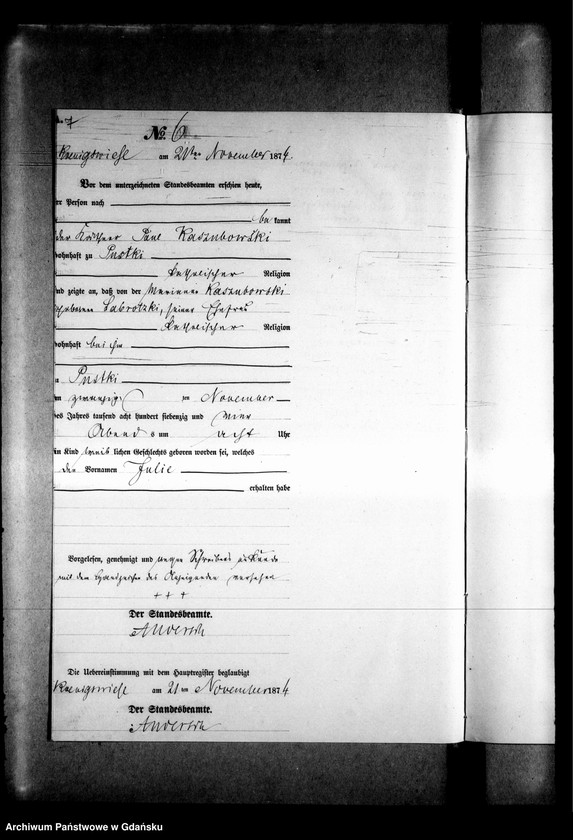 No. 6
Koenigswiese am 21ten November 1874
Vor dem unterzeichneten Standesbeamten erschien heute,
er Person nach
be kannt
der Paul Kaszubowski
wohnhaft zu Pustki
katholischer Religion
und zeigte an, daß von der Marianne Kaszubowski
geborenen seiner Ehefrau
katholischer Religion
wohnhaft bei ihm
Pustki
am zwanzigsten November
des Jahres tausend acht hundert siebenzig und vier
Abends um acht Uhr
ein Kind weib lichen Geschlechts geboren worden sei, welches
den Vornamen Julie
erhalten habe
Vorgelesen, genehmigt und wegen Schreibens unkunde
mit dem Handzeichen des Anzeigenden versehen
+ + +
Der Standesbeamte.
Die Uebereinstimmung mit dem Hauptregister beglaubigt
Koenigswiese am 21 ten November 1874
Der Standesbeamte.
Archiwum Państwowe w Gdańsku